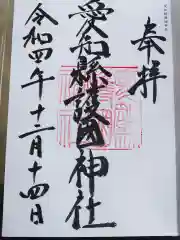 奉拝
愛知縣護國神社
令和四年十二月十四日